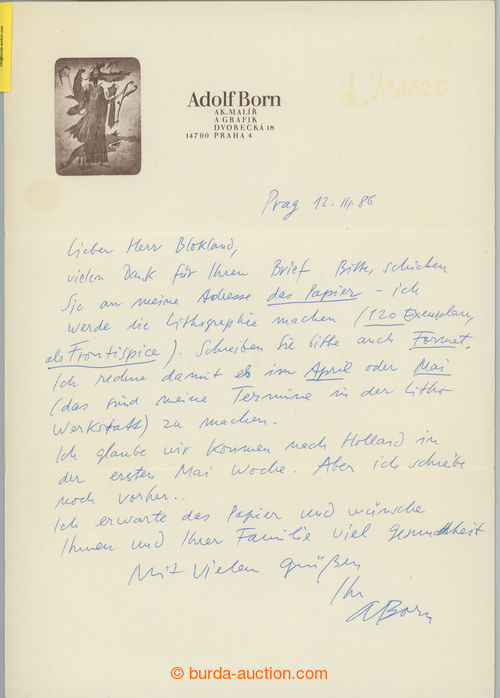 Adolf Born
AK. MALÍŘ
A GRAFIK
DVORECKÁ 18
147 00 PRAHA 4
Prag 12. III. 86
Lieber Herr Blokland,
vielen Dank für Ihren Brief. Bitte, schicken
Sie an meine Adresse das Papier – ich
werde die Lithographie machen (120 Exemplare,
als Frontispice). Schreiben Sie bitte auch Format.
Ich rechne damit es im April oder Mai
(das sind meine Termine in der Litho
Werkstatt) zu machen.
Ich glaube wir kommen nach Holland in
der ersten Mai Woche. Aber ich schreibe
noch vorher..
Ich erwarte das Papier und wünsche
Ihnen und Ihrer Familie viel gesundheit
Mit vielen grüßen
Ihr
ABorn
© burda-auction.com